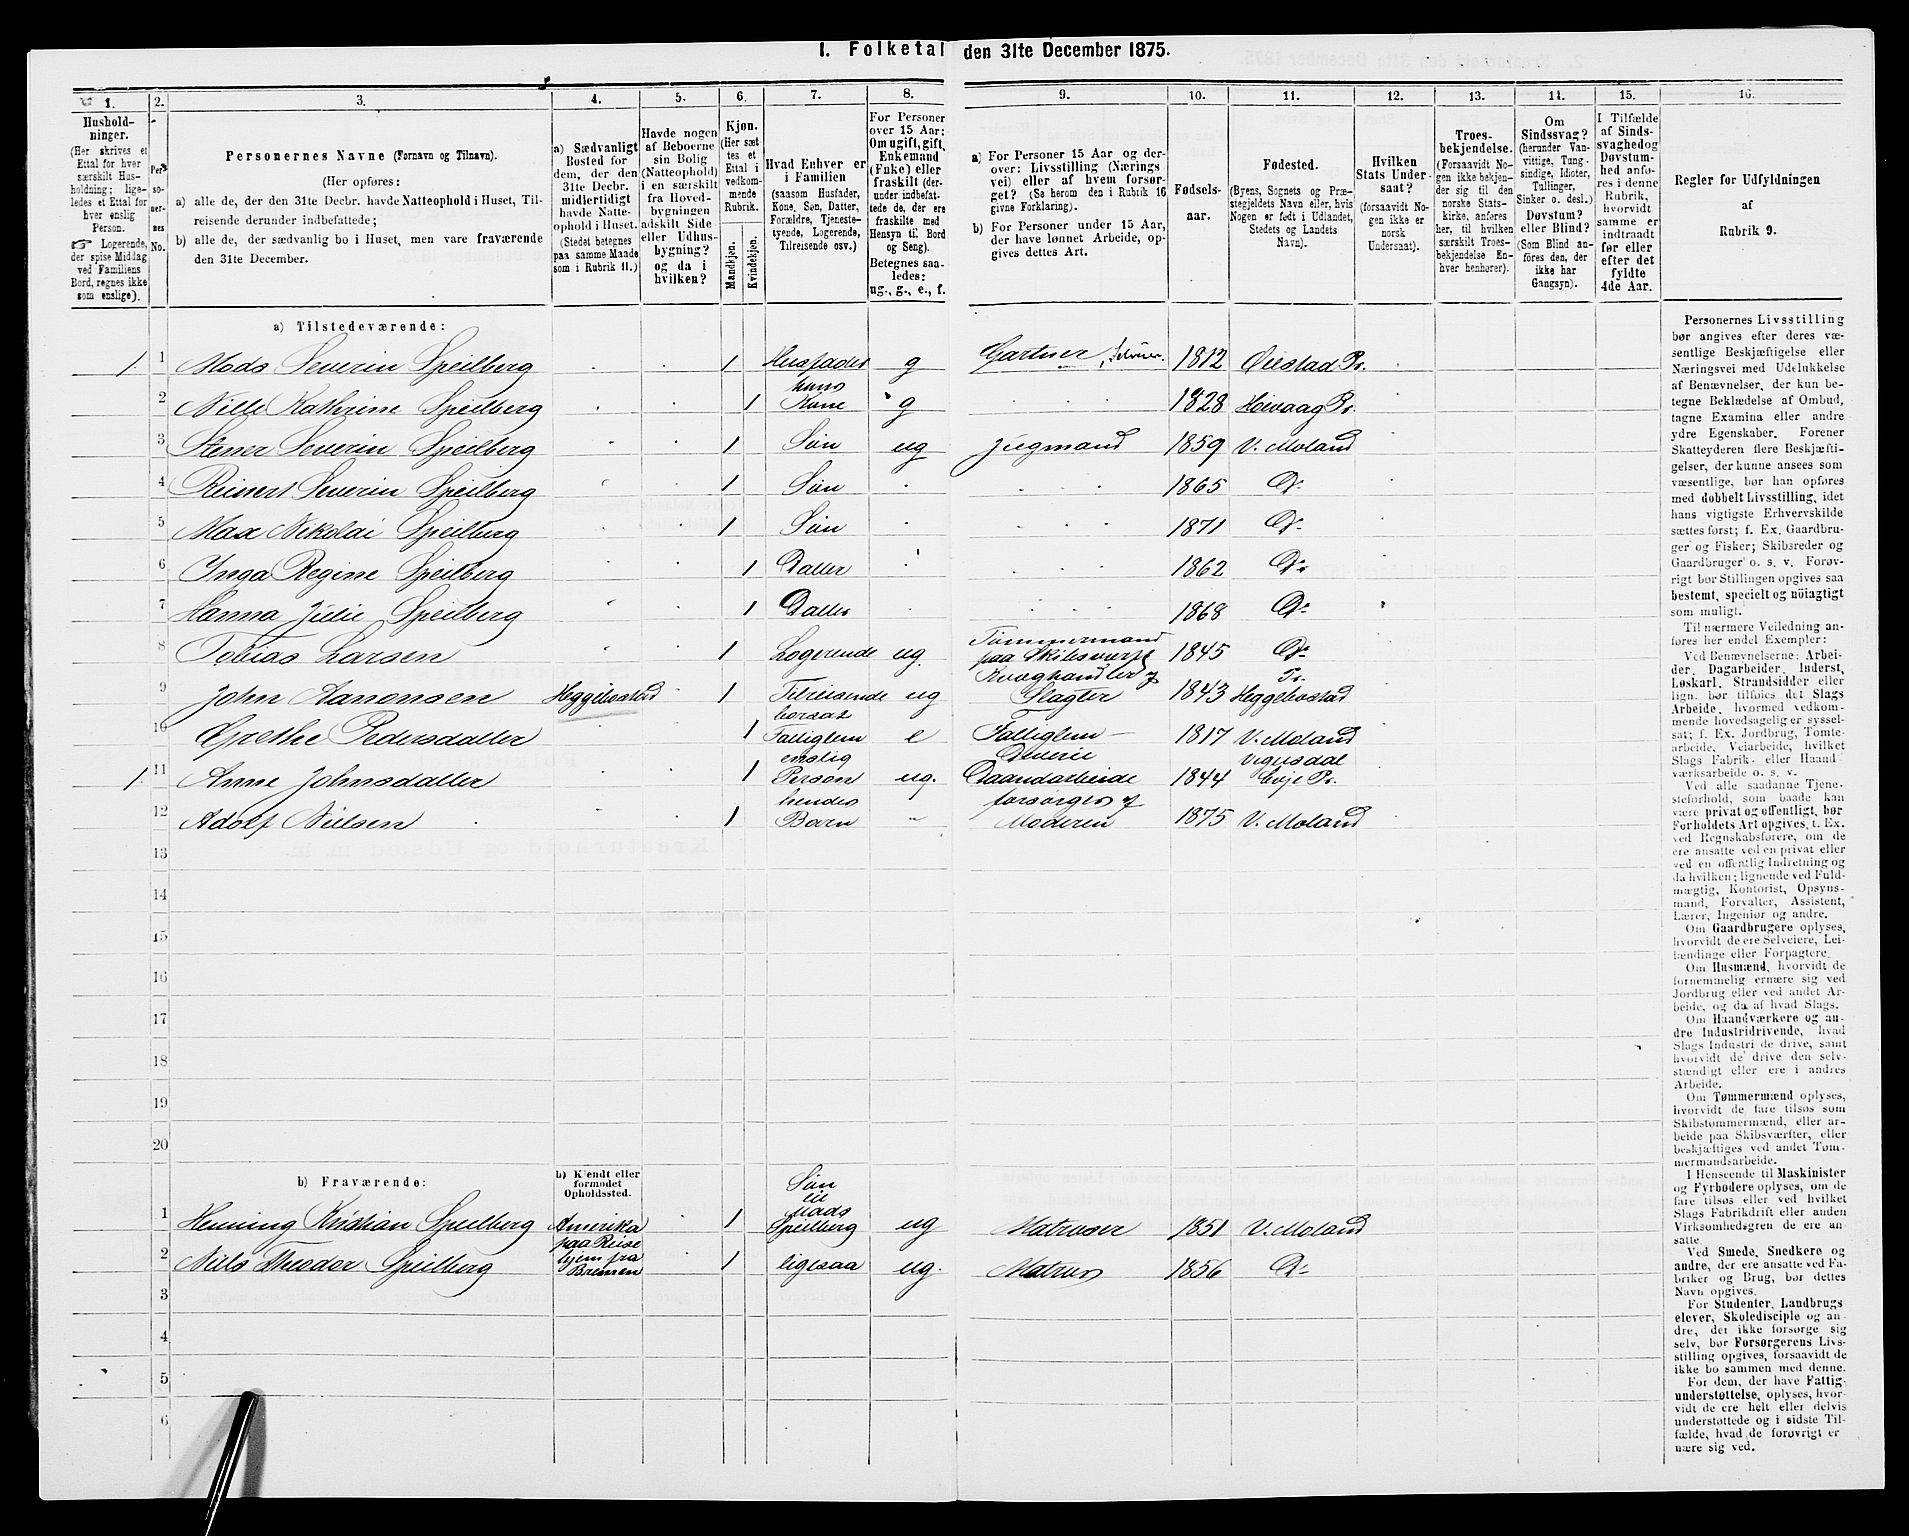 1. Folketal den 31te December 1875.
1. 2. 3. 4. 5. 6. 7. 8. 9. 10. 11. 12. 13. 14. 15. 16.
Hushold-
ninger.
(Her skrives et
Ettal for hver
særskilt Hus-
holdning; lige-
ledes et Ettal for
hver enslig
Person.
☞ Logerende,
der spise Middag
ved Familiens
Bord, regnes ikke
som enslige).
Per-
so-
ner-
nes
No.
Personernes Navne (Fornavn og Tilnavn).
(Her opføres:
a) alle de, der den 31te Decbr. havde Natteophold i Huset, Til-
reisende derunder indbefattede;
b) alle de, der sædvanlig bo i Huset, men vare fraværende
den 31te December.
a) Sædvanligt
Bosted for
dem, der den
31te Decbr.
midlertidigt
havde Natte-
ophold i Huset.
(Stedet betegnes
paa samme Maade
som i Rubrik 11.)
Havde nogen
af Beboerne
sin Bolig
(Natteophold)
i en særskilt
fra Hoved-
bygningen
adskilt Side-
eller Udhus-
bygning?
og da i
hvilken?
Kjøn.
(Her sæt-
tes et
Ettal i
vedkom-
mende
Rubrik.
Mandkjøn.
Kvindekjøn.
Hvad Enhver er
i Familien
(saasom Husfader,
Kone, Søn, Datter,
Forældre, Tjeneste-
tyende, Logerende,
Tilreisende osv.)
For Personer
over 15 Aar:
Om ugift, gift,
Enkemand
(Enke) eller
fraskilt (der-
under indbefat-
tede de, der ere
fraskilte med
Hensyn til Bord
og Seng).
Betegnes saa-
ledes:
ug., g., e., f.
a) For Personer 15 Aar og der-
over: Livsstilling (Nærings-
vei) eller af hvem forsør-
get? (Se herom den i Rubrik 16
givne Forklaring).
b) For Personer under 15 Aar,
der have lønnet Arbeide, op-
gives dettes Art.
Fødsels-
aar.
Fødested.
(Byens, Sognets og Præ-
stegjeldets Navn eller, hvis
Nogen er født i Udlandet,
Stedets og Landets
Navn).
Hvilken
Stats Under-
saat?
(forsaavidt No-
gen ikke er
norsk
Undersaat).
Troes-
bekjendelse.
(Forsaavidt No-
gen ikke bekjen-
der sig til den
norske Stats-
kirke, anføres
her, til hvilken
særskilt Troes-
bekjendelse En-
hver henhører).
Om
Sindssvag?
(herunder Van-
vittige, Tung-
sindige, Idioter,
Tullinger,
Sinker o. desl.)
Døvstum?
eller Blind?
(Som Blind an-
føres den, der
ikke har
Gangsyn).
I Tilfælde
af Sinds-
svaghed og
Døvstum-
hed anfø-
res i denne
Rubrik,
hvorvidt
samme er
indtraadt
før eller
efter det
fyldte
4de Aar.
Regler for Udfyldningen
af
Rubrik 9.
a) Tilstedeværende:
1. 1 Mads Severin Speilberg 1 Husfader g Gartner, 1812 Øiestad Pr.
2 Nille Kathrine Speilberg 1 hans Kone g 1828 Høvaag Pr.
3 Stener Severin Speilberg 1 Søn ug Jugmand 1859 V. Moland
4 Reinert Severin Speilberg 1 Søn 1865 Do
5 Max Nikolai Speilberg 1 Søn 1871 Do
6 Inga Regine Speilberg 1 Datter 1862 Do
7 Hanna Julie Speilberg 1 Datter 1868 Do
8 Tobias Larsen 1 Logerende ug. Tømmermand paa Skibsværft 1845 Do
9 John Aanonsen Heggebostad 1 Tilreisende ug Kvæghandler og Slagter 1843 Heggebostad Pr.
10 Grethe Pedersdatter 1 bortsat Fattiglem e Fattiglem 1817 V. Moland
1. 11 Anne Johnsdatter 1 enslig Person ug. Diverse Haandarbeide 1844 Vegusdal Evje Pr.
12 Adolf Nielsen 1 hendes Barn " forsørges af Moderen 1875 V. Moland
13
14
15
16
17
18
19
20
b) Fraværende:
b) Kjendt eller
formodet
Opholdssted.
1 Henning Kristian Speilberg Amerika 1 Søn til Mads Speilberg ug Matroser 1851 V. Moland
2 Niels Theodor Speilberg paa Reise hjem fra Bremen 1 ligesaa ug. Matros 1856 Do
3
4
5
6
Personernes Livsstilling
bør angives efter deres væ-
sentlige Beskjæftigelse eller
Næringsvei med Udelukkelse
af Benævnelser, der kun be-
tegne Beklædelse af Ombud,
tagne Examina eller andre
ydre Egenskaber. Forener
Skatteyderen flere Beskjæfti-
gelser, der kunne ansees som
væsentlige, bør han opføres
med dobbelt Livsstilling, idet
hans vigtigste Erhvervskilde
sættes først; f. Ex. Gaardbru-
ger og Fisker; Skibsreder og
Gaardbruger o. s. v. Forøv-
rigt bør Stillingen opgives saa
bestemt, specielt og nöiagtigt
som muligt.
Til nærmere Veiledning an-
føres her endel Exempler:
Ved Benævnelserne: Arbei-
der, Dagarbeider, Inderst,
Løskarl, Strandsidder eller
lign. bør tilføies det Slags
Arbeide, hvormed vedkom-
mende hovedsagelig er syssel-
sat; f. Ex. Jordbrug, Tomte-
arbeide, Veiarbeide, hvilket
Slags Fabrik- eller Haand-
værksarbeide o. s. v.
Ved alle saadanne Tjene-
steforhold, som baade kan
være privat og offentligt, bør
Forholdets Art opgives, t. Ex.
ved Regnskabsførere, om de
ere ansatte ved en privat eller
ved en offentlig Indretning og
da hvilken; lignende ved Fuld-
mægtig, Kontorist, Opsyns-
mand, Forvalter, Assistent,
Lærer, Ingeniør og andre.
Om Gaardbrugere oplyses,
hvorvidt de ere Selveiere, Lei-
lændinge eller Forpagtere.
Om Husmænd, hvorvidt de
fornemmelig ernære sig ved
Jordbrug eller ved andet Ar-
beide, og da af hvad Slags.
Om Haandværkere og an-
dre Industridrivende, hvad
Slags Industri de drive, samt
hvorvidt de drive den selv-
stændigt eller ere i andres
Arbeide.
Om Tømmermænd oplyses,
hvorvidt de fare tilsøs som
Skibstømmermænd, eller ar-
beide paa Skibsværfter, eller
beskjæftiges ved andet Tøm-
mermandsarbeide.
I Henseende til Maskinister
og Fyrbødere oplyses, om de
fare tilsøs eller ved hvilket
Slags Fabrikdrift eller anden
Virksomhedsgren de ere an-
satte.
Ved Smede, Snedkere og
andre, der ere ansatte ved Fa-
briker og Brug, bør dettes
Navn opgives.
For Studenter, Landbrugs-
elever, Skoledisciple og an-
dre, der ikke forsørge sig
selv, bør Forsørgerens Livs-
stilling opgives, forsaavidt de
ikke bo sammen med denne.
For dem, der have Fattig-
understøttelse, oplyses, hvor-
vidt de ere helt eller delvis
understøttede og i sidste Til-
fælde, hvad de forøvrigt er-
nære sig ved.